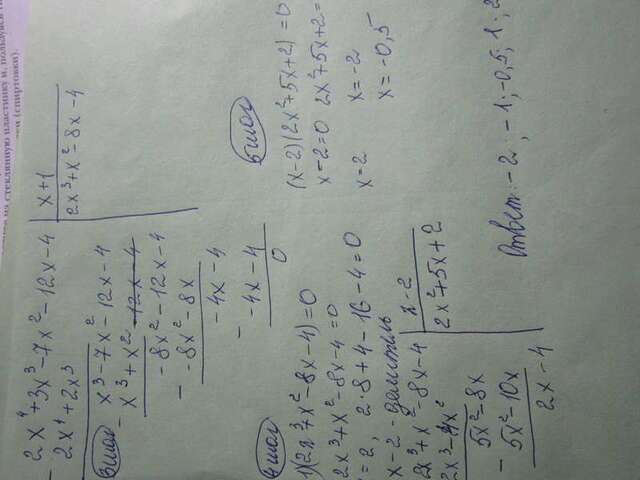 из стеклянную пластинку и, пользуясь
(спиртовки).
2x⁴+3x³-7x²-12x-4 | x+1
- 2x⁴+2x³ | 2x³+x²-8x-4
3 шаг x³-7x²-12x-4
- x³+x² -12x-4
-8x²-12x-4
- -8x²-8x
-4x-4
- -4x-4
0
4 шаг
1)(2x³+x²-8x-4)=0
2x³+x²-8x-4=0
=2, 2·8+4-16-4=0
x-2 - делитель
2x³+x²-8x-4 | x-2
2x³-4x² | 2x²+5x+2
5x²-8x
- 5x²-10x
2x-4
5 шаг
(x-2)(2x²+5x+2)=0
x-2=0 2x²+5x+2=
x=2 x=-2
x=-0,5
Ответ: -2; -1; -0,5; 1; 2